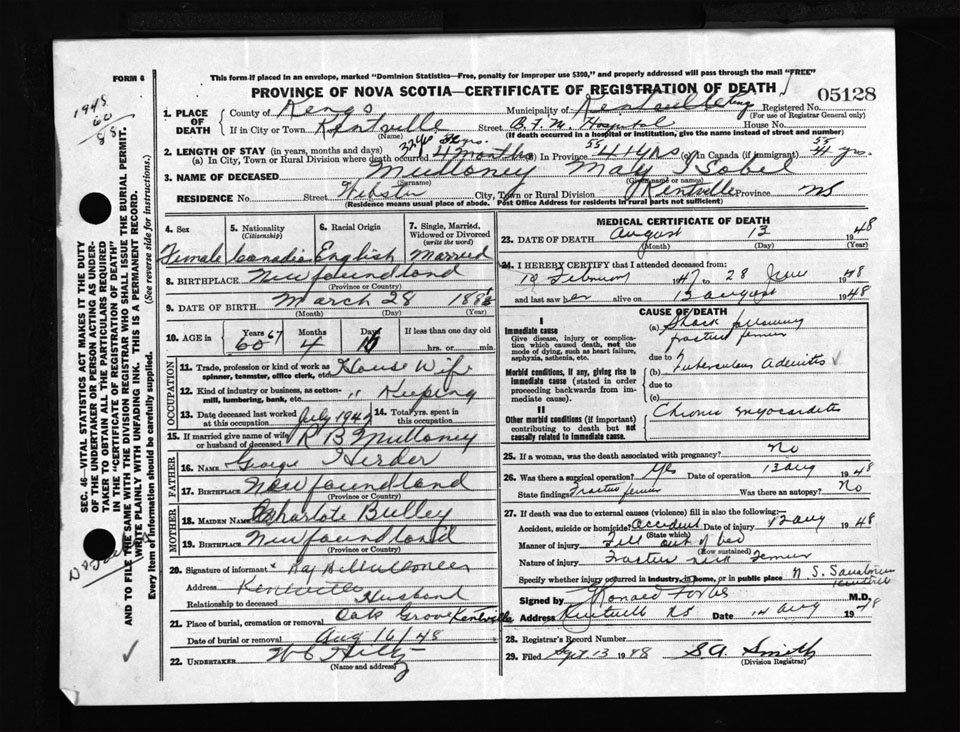 FORM 6
This form if placed in an envelope, marked "Dominion Statistics—Free, penalty for improper use $300," and properly addressed will pass through the mail "FREE"
PROVINCE OF NOVA SCOTIA—CERTIFICATE OF REGISTRATION OF DEATH
05128
1948
60
88
1. PLACE OF DEATH
County of Kings Municipality of Kentville Registered No.
(For use of Registrar General only)
If in City or Town Kentville Street Hospital House No.
(Name) (If death occurred in a hospital or institution, give the name instead of street and number)
2. LENGTH OF STAY (in years, months and days)
(a) In City, Town or Rural Division where death occurred 4 months In Province 55 44 yrs (c) In Canada (if immigrant) 55 yrs.
3. NAME OF DECEASED Mulloney May Isobel
(Surname) (Given name or names)
RESIDENCE No. Street Webster City, Town or Rural Division Kentville Province NS
(Residence means usual place of abode. Post Office Address for residents in rural parts not sufficient)
4. Sex 5. Nationality (Citizenship) 6. Racial Origin 7. Single, Married, Widowed or Divorced (write the word)
Female Canadian English Married
8. BIRTHPLACE Newfoundland
(Province or Country)
9. DATE OF BIRTH March 28 188
(Month) (Day) (Year)
10. AGE in Years 60 67 Months 4 Days If less than one day old hrs. or min.
OCCUPATION
11. Trade, profession or kind of work as spinner, teamster, office clerk, etc. House Wife
12. Kind of industry or business, as cotton-mill, lumbering, bank, etc. " Keeping
13. Date deceased last worked at this occupation July 1947 14. Total yrs. spent in this occupation
15. If married give name of wife or husband of deceased R B Mulloney
FATHER
16. NAME George Herder
17. BIRTHPLACE Newfoundland
(Province or Country)
MOTHER
18. MAIDEN NAME Charlote Bulley
19. BIRTHPLACE Newfoundland
(Province or Country)
20. Signature of informant
Address Kentville
Relationship to deceased Husband
21. Place of burial, cremation or removal Oak Grove Kentville
Date of burial or removal Aug 16/48
22. UNDERTAKER W C Hiltz
(Name and address)
MEDICAL CERTIFICATE OF DEATH
23. DATE OF DEATH August 13 1948
(Month) (Day) (Year)
24. I HEREBY CERTIFY that I attended deceased from:
19 February 1947 28 June 1948
and last saw her alive on 12 August 1948
CAUSE OF DEATH
I
Immediate cause
Give disease, injury or complication which caused death, not the mode of dying, such as heart failure, asphyxia, asthenia, etc.
(a) Shock following fractured femur
due to
Morbid conditions, if any, giving rise to immediate cause (stated in order proceeding backwards from immediate cause).
(b) Tuberculous Adenitis
due to
(c)
II
Other morbid conditions (if important) contributing to death but not causally related to immediate cause.
Chronic myocarditis
25. If a woman, was the death associated with pregnancy? No
26. Was there a surgical operation? Yes Date of operation 13 Aug 1948
State findings Fracture femur Was there an autopsy? No
27. If death was due to external causes (violence) fill in also the following:
Accident, suicide or homicide? Accident Date of injury 12 Aug 1948
(State which)
Manner of injury Fell out of bed
(How sustained)
Nature of injury Fracture neck Femur
Specify whether injury occurred in industry, in home, or in public place N S Sanatorium Kentville
Signed by Ronald Forbes M.D.
Address Kentville NS Date 14 Aug 1948
28. Registrar's Record Number
29. Filed Sept. 13 1948 S.A. Smith
(Division Registrar)
SEC. 46—VITAL STATISTICS ACT MAKES IT THE DUTY
OF THE UNDERTAKER OR PERSON ACTING AS UNDER-
TAKER TO OBTAIN ALL THE PARTICULARS REQUIRED
IN THE "CERTIFICATE OF REGISTRATION OF DEATH"
AND TO FILE THE SAME WITH THE DIVISION REGISTRAR WHO SHALL ISSUE THE BURIAL PERMIT.
WRITE PLAINLY WITH UNFADING INK. THIS IS A PERMANENT RECORD.
Every item of information should be carefully supplied. (See reverse side for instructions.)